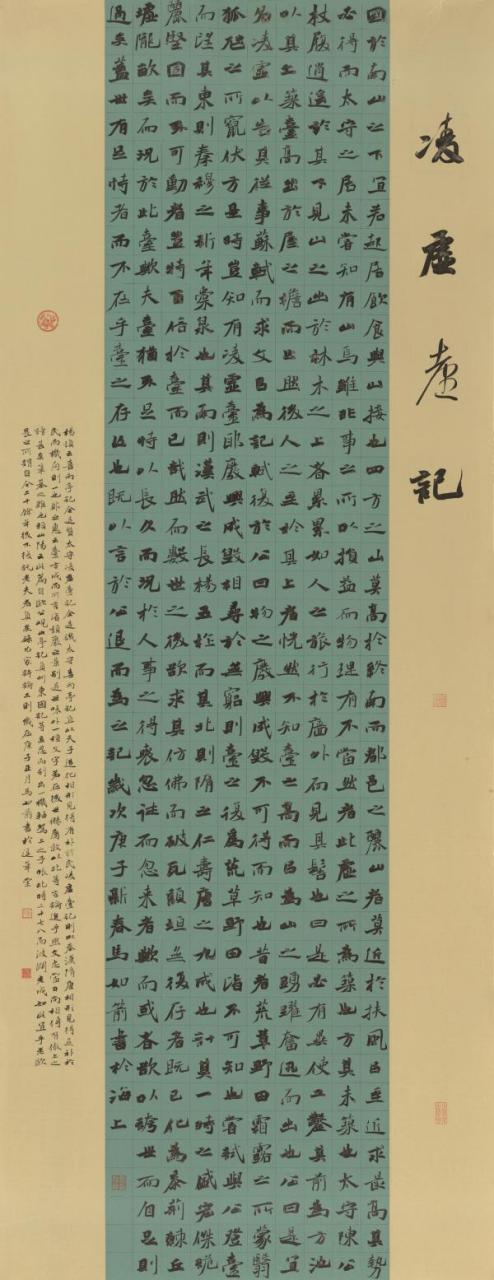 凌虛臺記
國於南山之下宜若起居飲食與山接也四方之山莫高於終南而都邑之麗山者莫近於扶風以至近求最高其勢
必得而太守之居未嘗知有山焉雖非事之所以損益而物理有不當然者此虛之所為築也方其未築也太守陳公
杖履逍遙於其下見山之出於林木之上者累累如人之旅行於牆外而見其髻也曰是必有異使工鑿其前為方池
以其土築臺高出於屋之檐而止然後人之至於其上者恍然不知臺之高而以為山之踴躍奮迅而出也公曰是宜
名凌虛以告其從事蘇軾而求文以為記軾復於公曰物之廢興成毀不可得而知也昔者荒草野田霜露之所蒙翳
狐虺之所竄伏方是時豈知有凌虛臺耶廢興成毀相尋於無窮則臺之復為荒草野田皆不可知也嘗試與公登臺
而望其東則秦穆之祈年橐泉也其南則漢武之長楊五柞而其北則隋之仁壽唐之九成也計其一時之盛宏傑詭
麗堅固而不可動者豈特百倍於臺而已哉然而數世之後欲求其仿佛而破瓦頹垣無復存者既已化為黍荊棘丘
墟隴畝矣而況於此臺歟夫臺猶不足恃以長久而況於人事之得喪忽往而忽來者歟而或者欲以誇世而自足則
過矣蓋世有足恃者而不在乎臺之存亡也既以言於公退而為之記歲次庚子新春馬如箭書於海上
楊慎云喜雨亭記全是贊太守凌虛臺記全是譏太守喜雨亭記直以天子造化相形見得有補於民凌虛臺記則以秦漢隋唐相形見得無補於
民而機局則一也